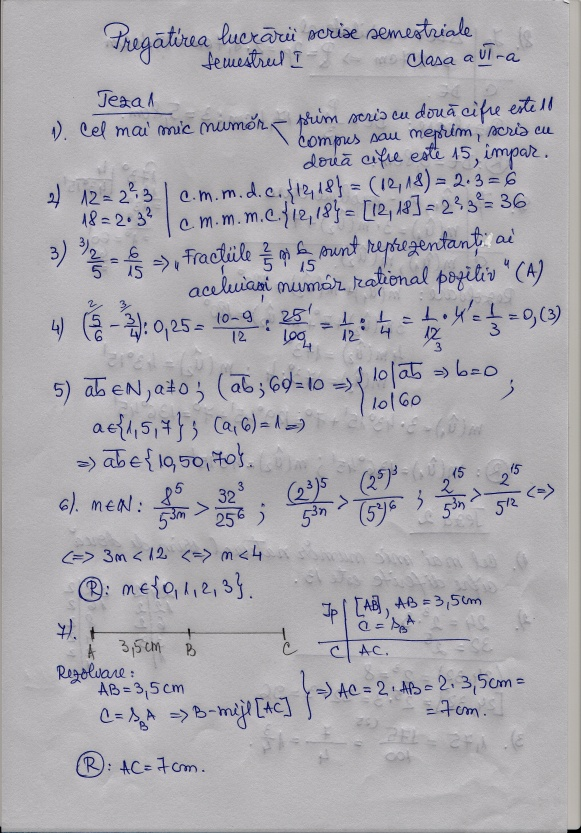 Pregătirea lucrării scrise semestriale
Semestrul I Clasa a VI-a
Teza 1
1). Cel mai mic număr prim scris cu două cifre este 11
compus sau neprim, scris cu
două cifre este 15, impar.
2) 12 = 2²·3 | c.m.m.d.c.{12,18} = (12,18) = 2·3 = 6
18 = 2·3² | c.m.m.m.c.{12,18} = [12,18] = 2²·3² = 36
3) ³⁾2/5 = 6/15 => „Fracțiile 2/5 și 6/15 sunt reprezentanți ai
aceluiași număr rațional pozitiv" (A)
4) (²⁾5/6 - ³⁾3/4) : 0,25 = 10-9/12 : 25¹/100₄ = 1/12 : 1/4 = 1/12₃ · 4¹ = 1/3 = 0,(3)
5) ab ∈ N, a≠0 ; (ab ; 60) = 10 => { 10 | ab => b=0 ;
10 | 60
a ∈ {1,5,7} ; (a,6) = 1 =>
=> ab ∈ {10,50,70}.
6). n∈N : 8⁵/5³ⁿ > 32³/25⁶ ; (2³)⁵/5³ⁿ > (2⁵)³/(5²)⁶ ; 2¹⁵/5³ⁿ > 2¹⁵/5¹² <=>
<=> 3n < 12 <=> n < 4
R : n∈{0,1,2,3}.
7). A 3,5cm B C
Ip | [AB], AB = 3,5cm
C = S_B A
C | AC.
Rezolvare:
AB = 3,5cm
C = S_B A => B-mijl [AC] } => AC = 2·AB = 2·3,5cm =
= 7cm.
R : AC = 7cm.